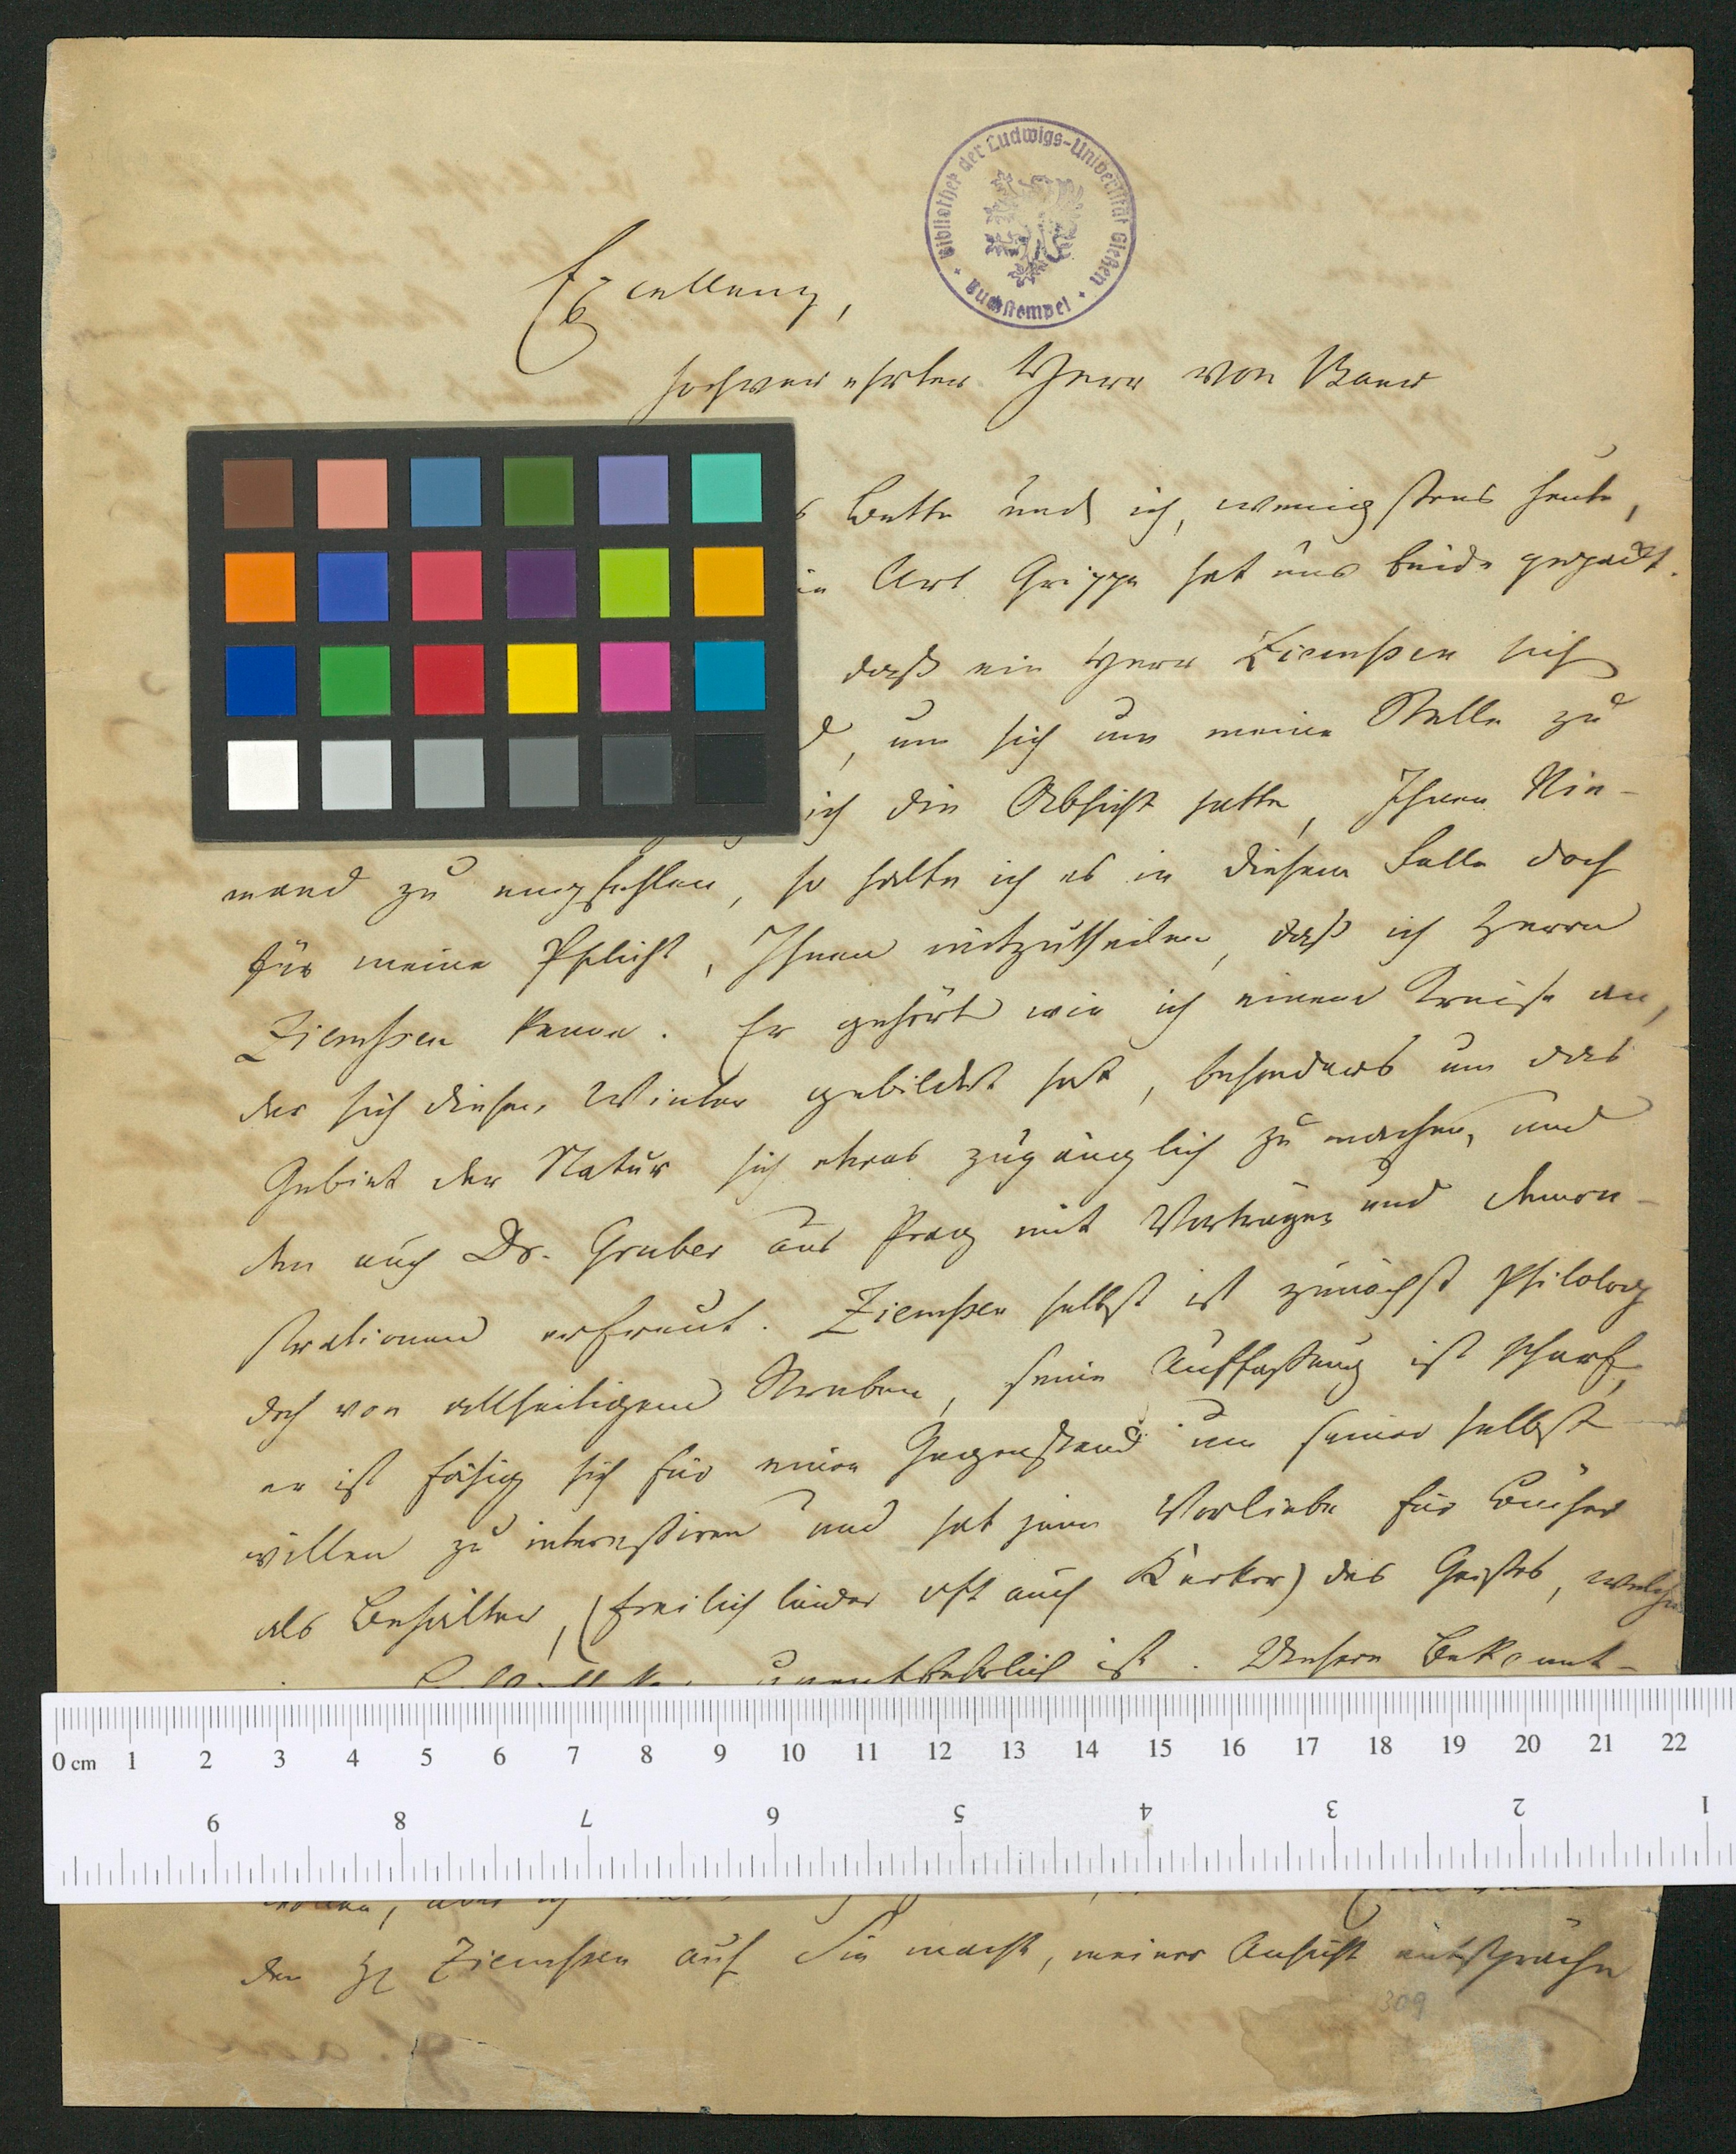 Bibliothek der Ludwigs-Universität Gießen
Buchstempel
Excellenz,
hochverehrter Herr von Baer
Bette und ich, wenigstens heute,
Art Grippe hat uns beide gepackt.
daß ein Herr Ziemßen sich
, um sich um meine Stelle zu
ich die Absicht hatte, Ihnen Nie-
mand zu empfehlen, so halte ich es in diesem Falle doch
für meine Pflicht, Ihnen mitzutheilen, daß ich Herrn
Ziemßen kenne. Er gehört wie ich einem Kreise an,
der sich diesen Winter gebildet hat, besonders um das
Gebiet der Natur sich etwas zugänglich zu machen, und
den auch Dr. Gruber aus Prag mit Vorträgen und Demon-
strationen erfreut. Ziemßen selbst ist zunächst Philolog
doch von allseitigem Streben, seine Auffassung ist scharf,
er ist fähig sich für einen Gegenstand um seiner selbst
willen zu interessiren und hat jene Vorliebe für Bücher
als Behälter, (freilich leider oft auch Kerker) des Geistes, welche
unentbehrlich ist. Unsere Bekannt-
0 cm 1 2 3 4 5 6 7 8 9 10 11 12 13 14 15 16 17 18 19 20 21 22
9 8 7 6 5 4 3 2 1
den H Ziemßen auf Sie macht, meiner Ansicht entspräche
309